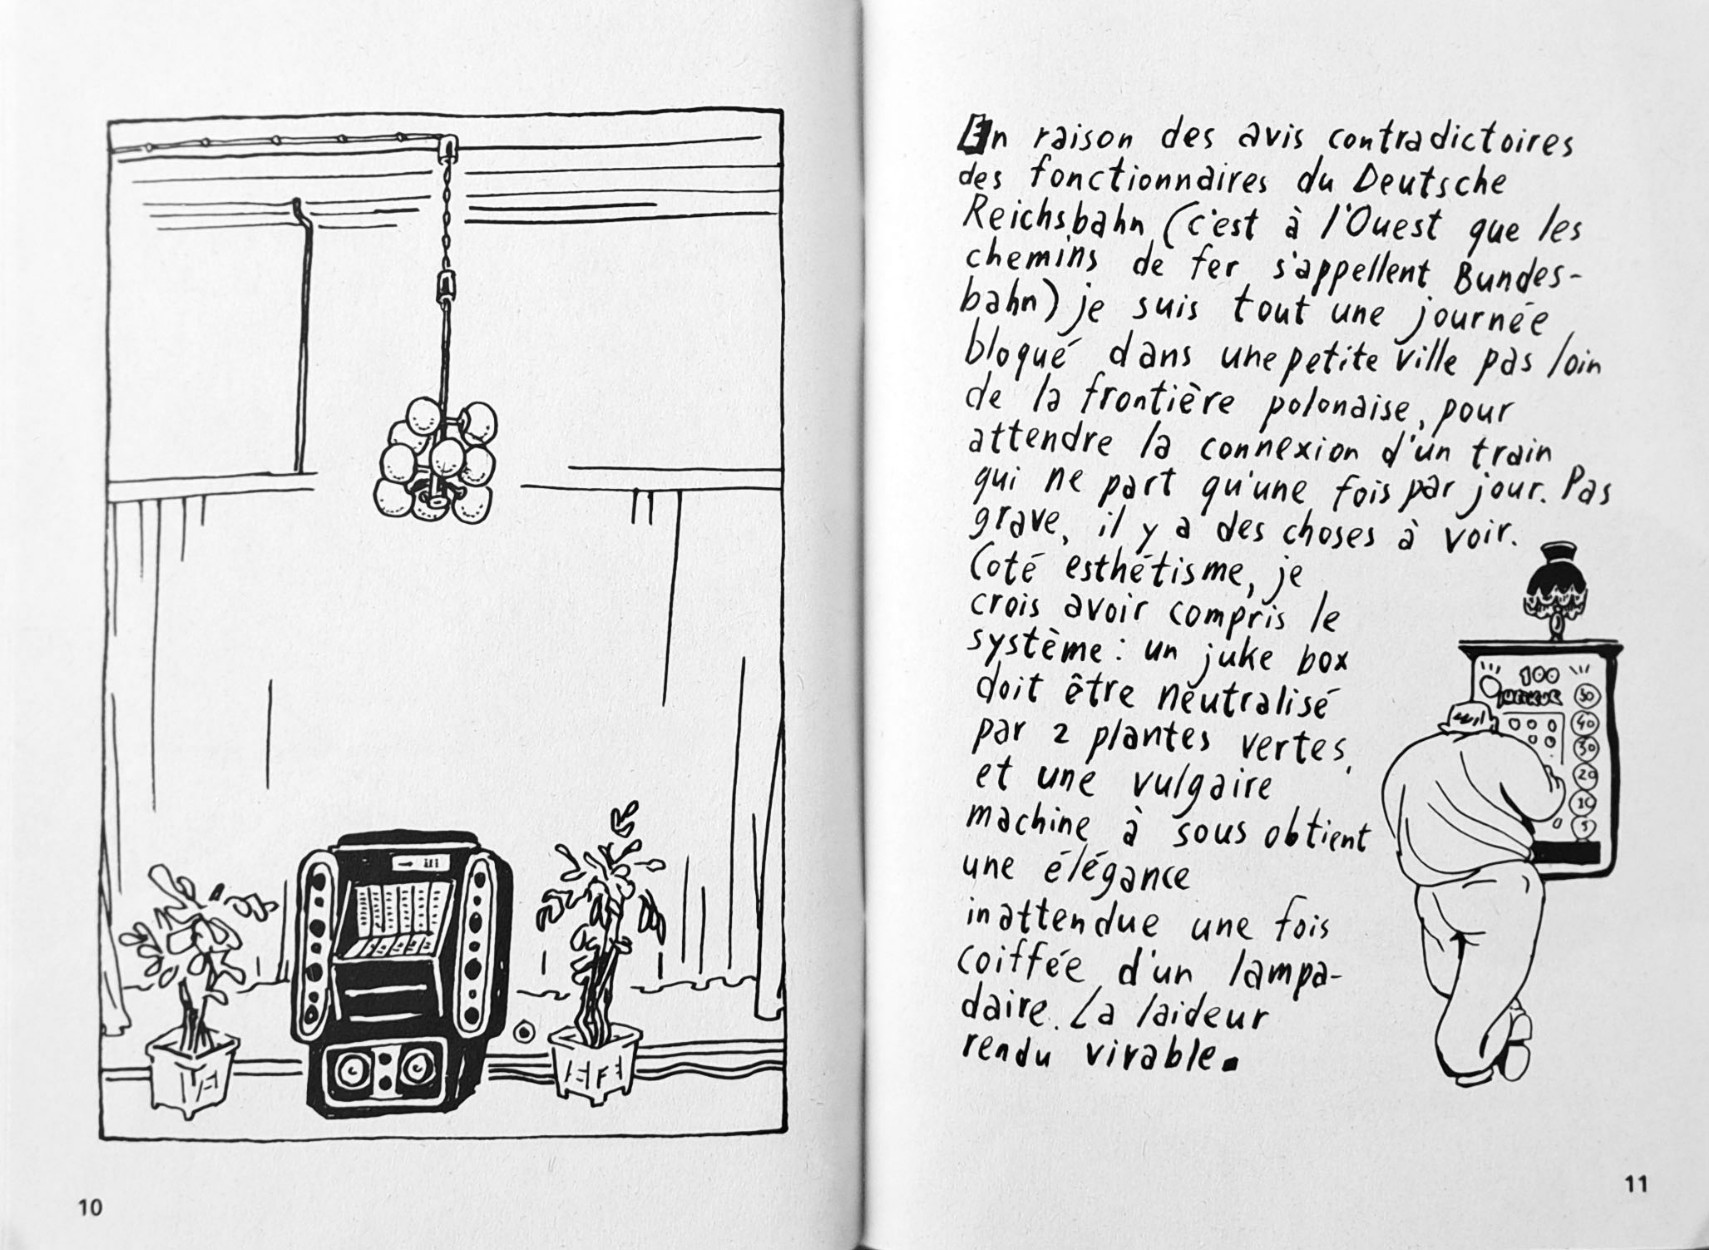 10
En raison des avis contradictoires
des fonctionnaires du Deutsche
Reichsbahn (c'est à l'Ouest que les
chemins de fer s'appellent Bundes-
bahn) je suis tout une journée
bloqué dans une petite ville pas loin
de la frontière polonaise, pour
attendre la connexion d'un train
qui ne part qu'une fois par jour. Pas
grave, il y a des choses à voir.
Coté esthétisme, je
crois avoir compris le
système : un juke box
doit être neutralisé
par 2 plantes vertes,
et une vulgaire
machine à sous obtient
une élégance
inattendue une fois
coiffée d'un lampa-
daire. La laideur
rendu vivable.
100
50
40
30
20
10
5
11